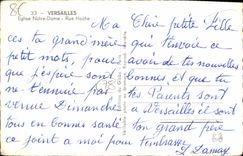 33 - VERSAILLES
Eglise Notre-Dame - Rue Hoche
Ma chère petite fille
c'est ta grand'mère qui t'envoie ce
petit mots, pour avoir de tes nouvelles
que j'espère sont bonnes et que tu
ne t'ennuie pas tes Parents sont
venue Dimanche à Versailles ils sont
tous en bonne santé ton grand père
ce joint a moi pour t'embrasser